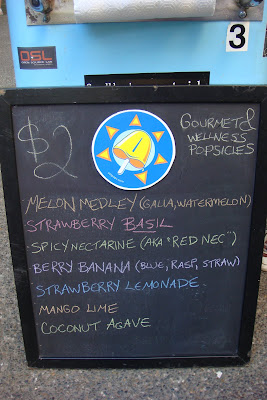 3
$2
GOURMET &
WELLNESS
POPSICLES
MELON MEDLEY (GALIA, WATERMELON)
STRAWBERRY BASIL
SPICY NECTARINE (AKA "RED NEC")
BERRY BANANA (BLUE, RASP, STRAW)
STRAWBERRY LEMONADE
MANGO LIME
COCONUT AGAVE